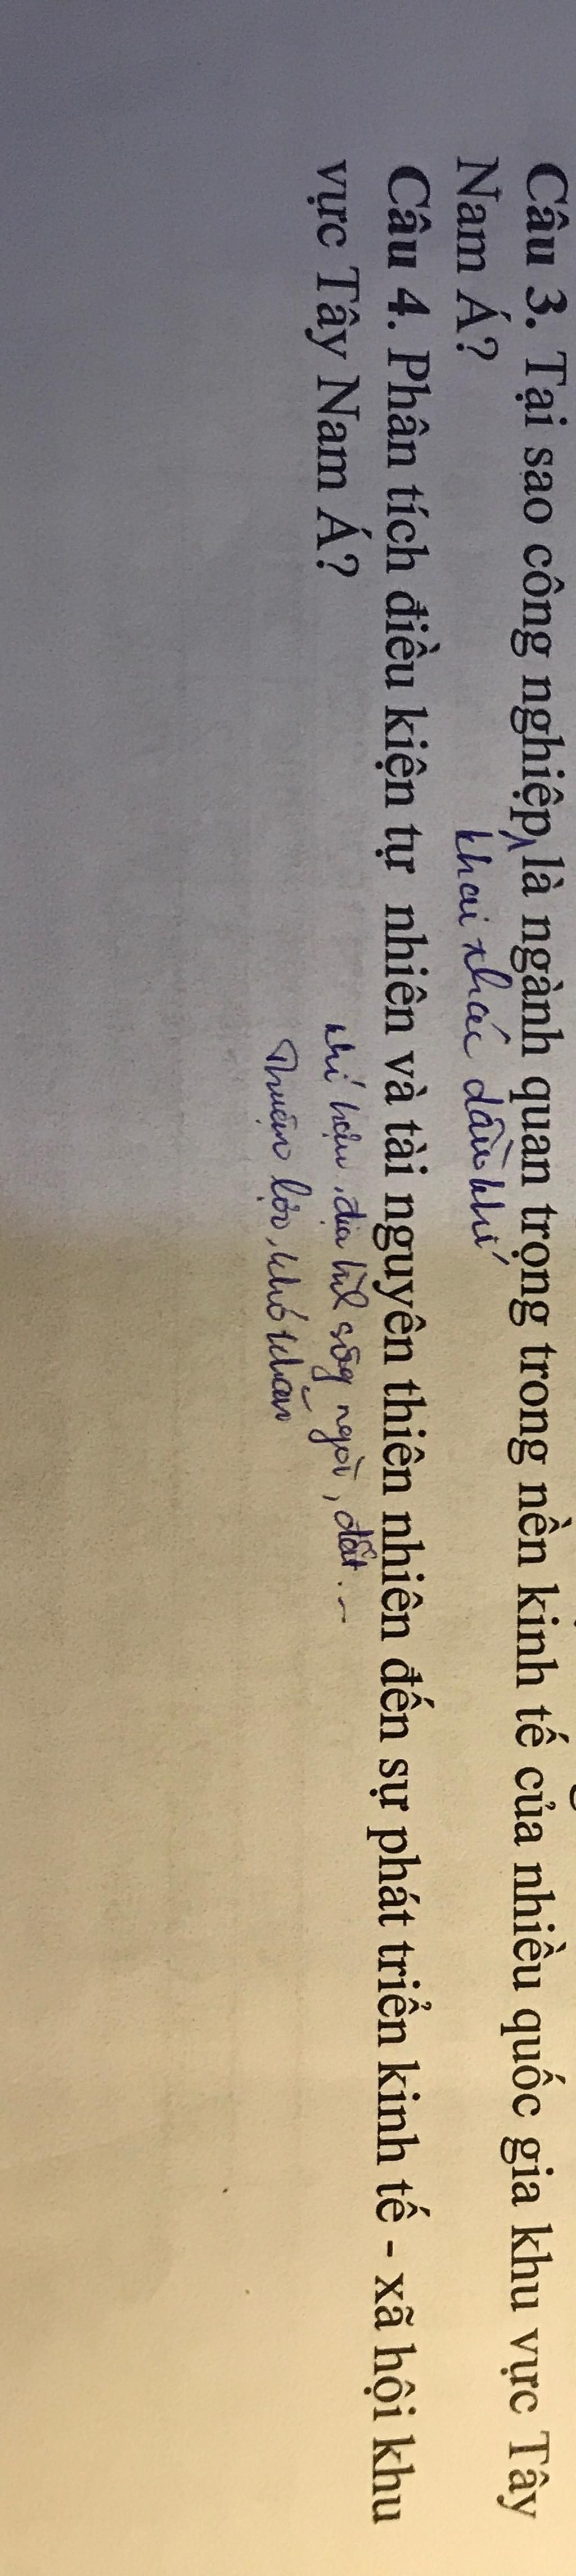 Câu 3. Tại sao công nghiệp là ngành quan trọng trong nền kinh tế của nhiều quốc gia khu vực Tây
khai thác dầu khí
Nam Á?
Câu 4. Phân tích điều kiện tự nhiên và tài nguyên thiên nhiên đến sự phát triển kinh tế - xã hội khu
vực Tây Nam Á?
khí hậu, địa hình sông ngòi, đất...
Thuận lợi, khó khăn